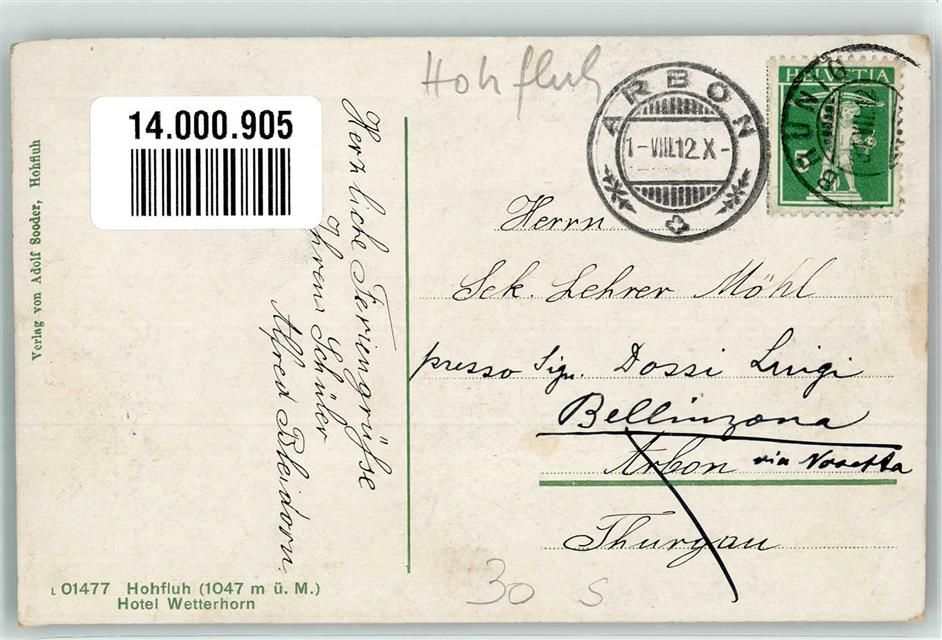 Hohfluh
14.000.905
Verlag von Adolf Sooder, Hohfluh
Herzliche Feriengrüsse
Ihrem Schüler
Alfred
ARBON
1-VIII.12 X-
HELVETIA
5
Herrn
Sek. Lehrer Möhl
presso Sign. Dossi Luigi
Bellinzona
Arbon via Nosetta
Thurgau
L 01477 Hohfluh (1047 m ü. M.)
Hotel Wetterhorn
30 s